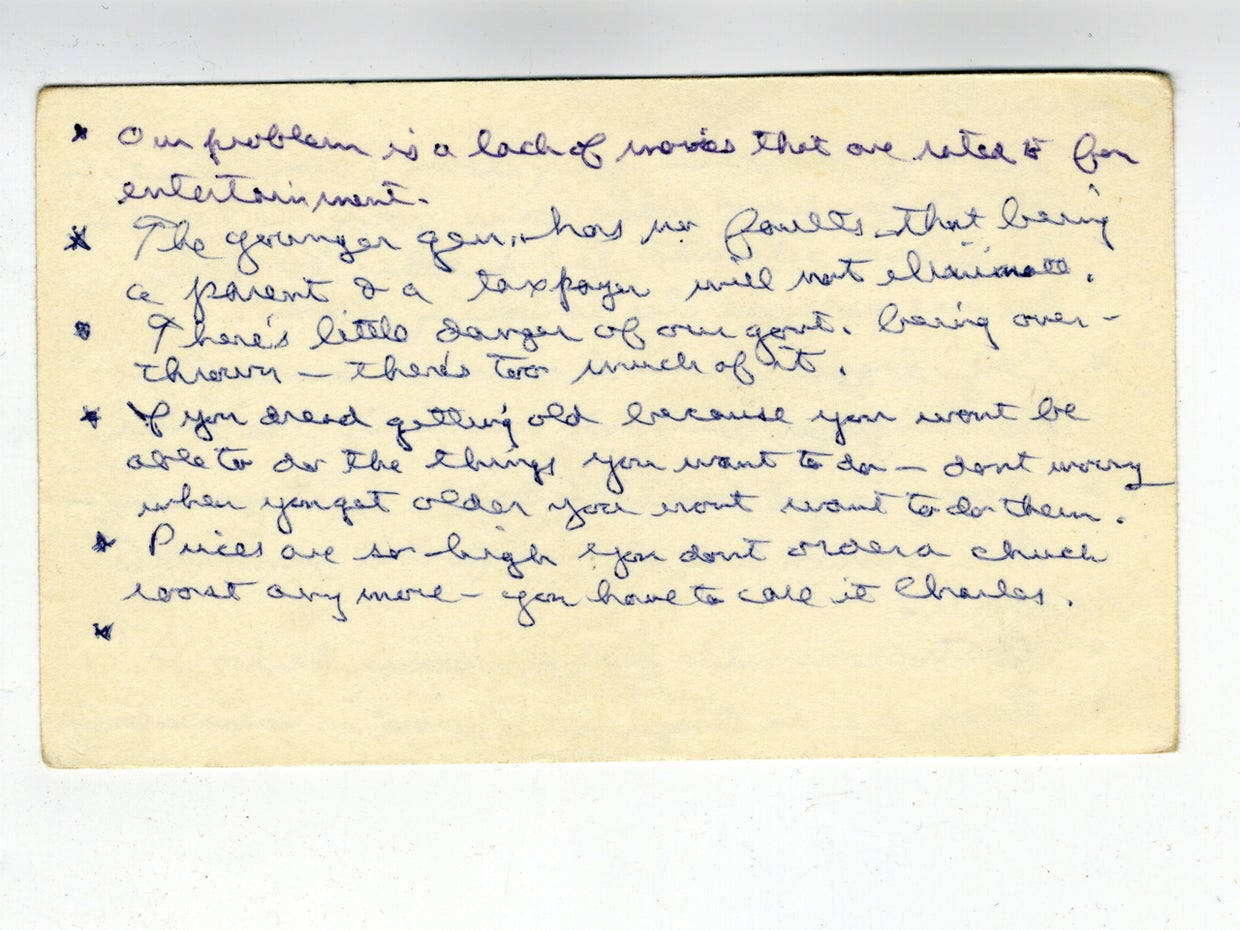 * Our problem is a lack of movies that are rated E for
entertainment.
* The younger gen. has no faults that being
a parent & a taxpayer will not eliminate.
* There's little danger of our govt. being over-
thrown – there's too much of it.
* If you dread getting old because you wont be
able to do the things you want to do – dont worry
when you get older you wont want to do them.
* Prices are so high you dont order a chuck
roast any more – you have to call it Charles.
*